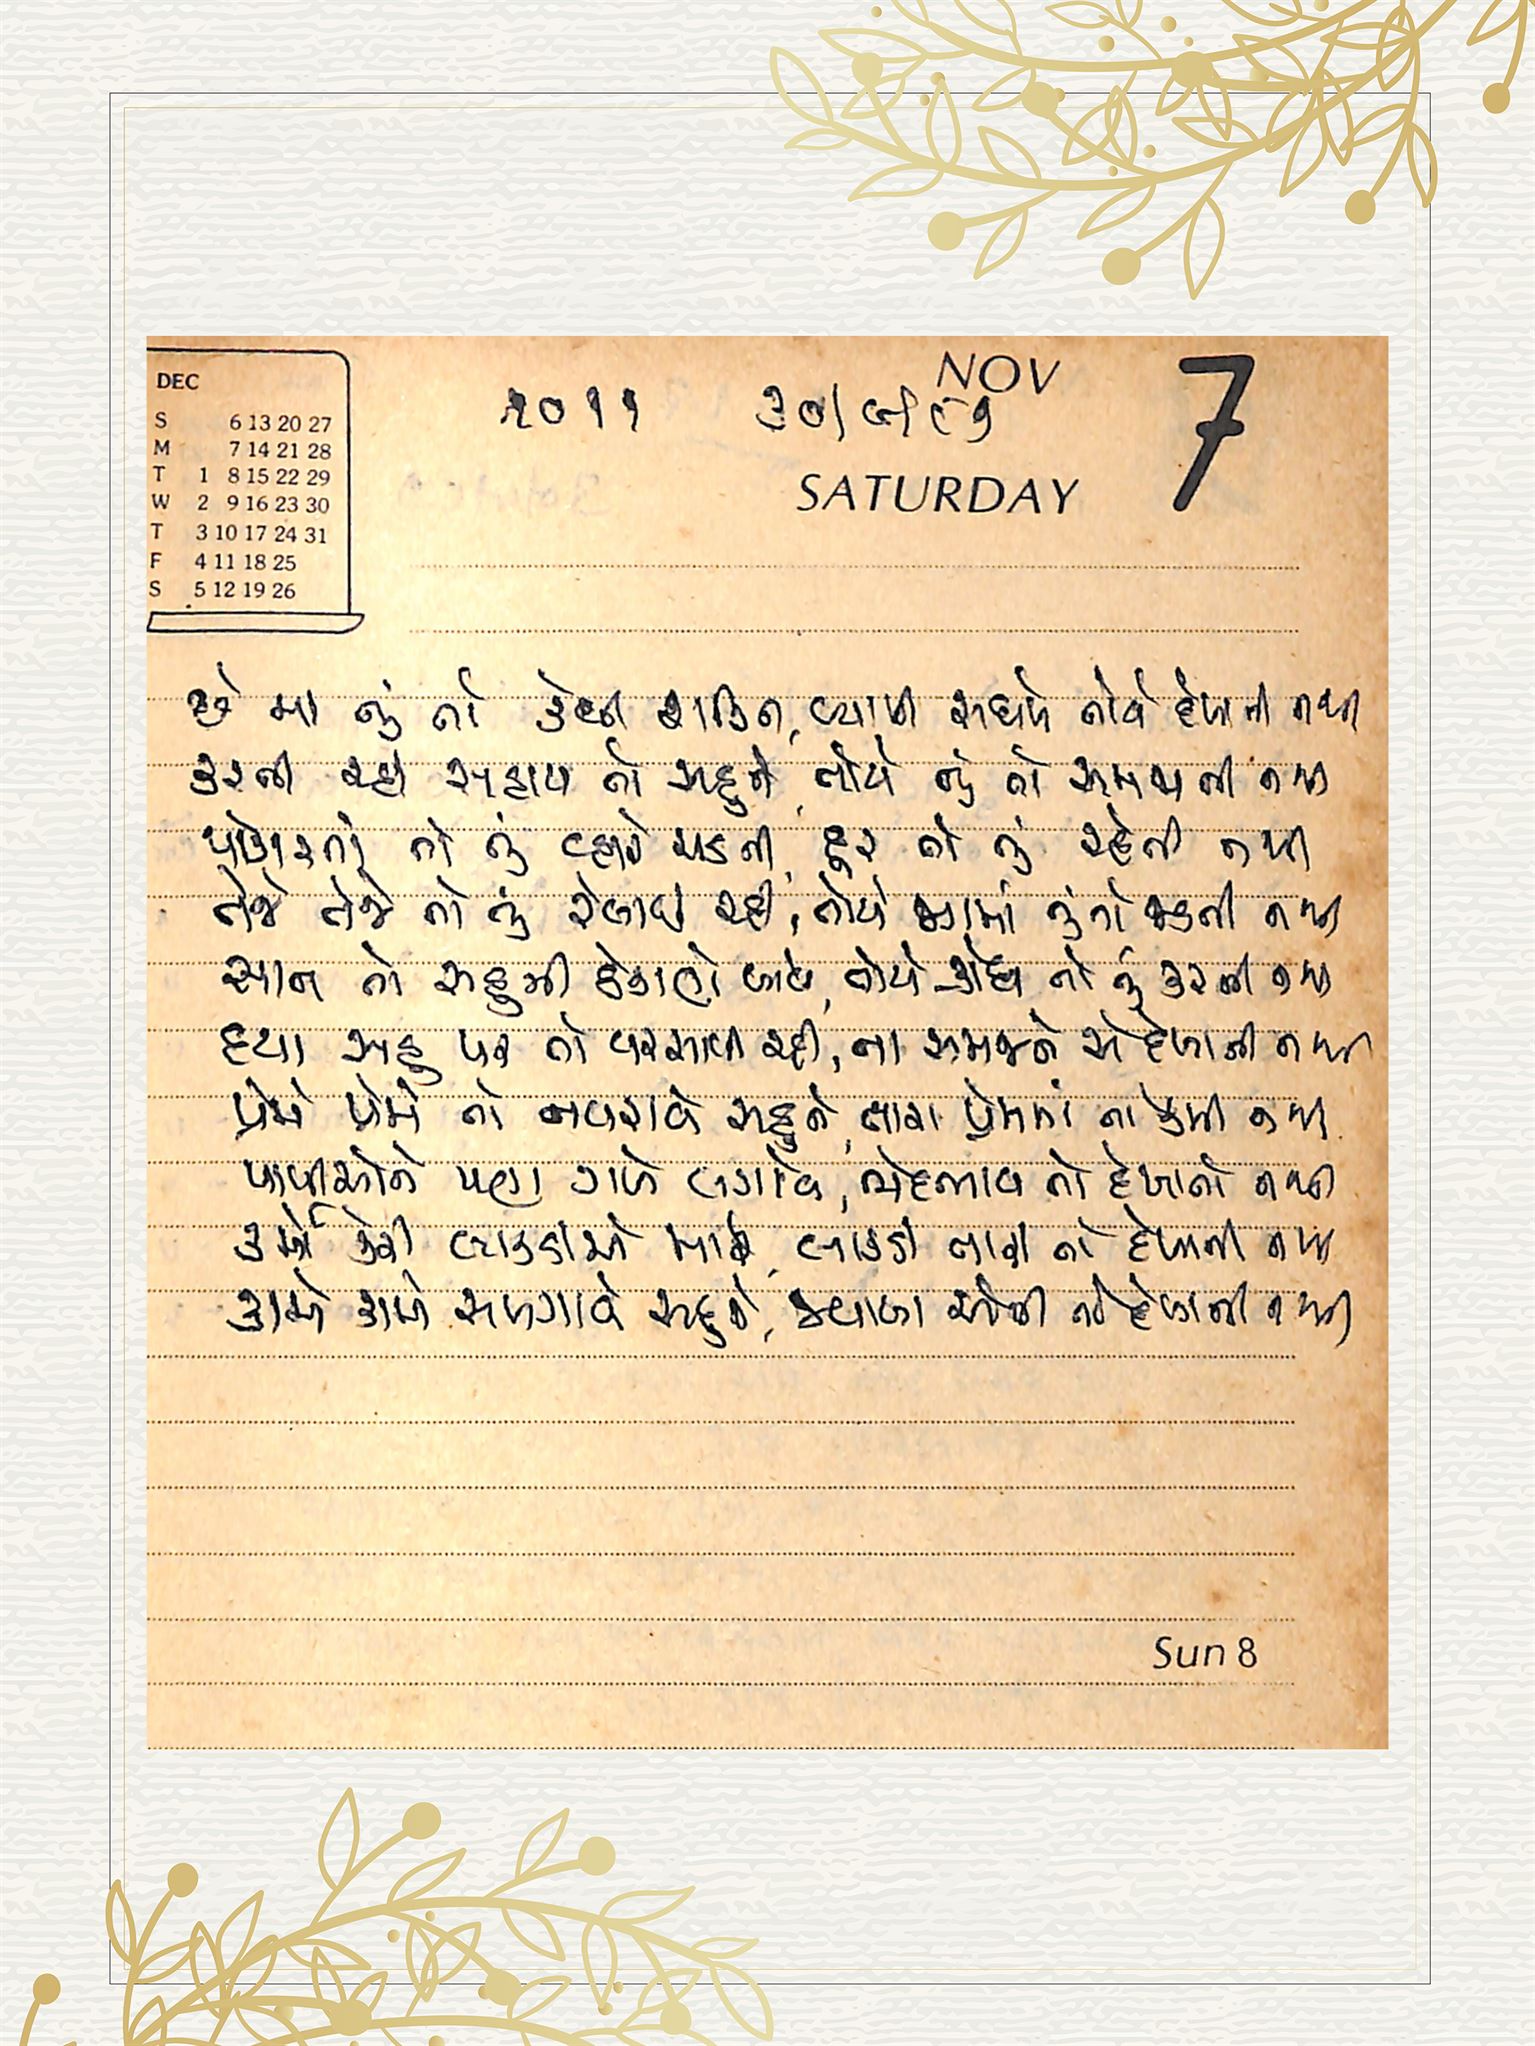 DEC
S 6 13 20 27
M 7 14 21 28
T 1 8 15 22 29
W 2 9 16 23 30
T 3 10 17 24 31
F 4 11 18 25
S 5 12 19 26
NOV 7
૨૦૧૧ ૩૦/૯/૮૭
SATURDAY
છે મા તું તો કેવી શક્તિ, વ્યાપી સઘળે તોયે દેખાતી નથી
કરતી રહી સહાય તો સહુને, તોયે તું તો સમજાતી નથી
પોકારતાં તો તું વ્હારે ચડતી, દૂર તો તું રહેતી નથી
તેજે તેજે તો તું રેલાઈ રહી, તોયે જગમાં તું તો જડતી નથી
સ્થાન તો સહુની ઠેકાણે લાવે, તોયે ક્રોધ તો તું કરતી નથી
દયા સહુ પર તો વરસાવી રહી, ના સમજને એ દેખાતી નથી
પ્રેમે પ્રેમે તો નવરાવે સહુને, તારા પ્રેમમાં તો કમી નથી
પાપીઓને પણ ગળે લગાવે, ભેદભાવ તો દેખાતો નથી
કર્મો કેરી લાકડીએ મારે, લાકડી તારી તો દેખાતી નથી
કામે કામે સળગાવે સહુને, જ્વાળા એની તો દેખાતી નથી
Sun 8